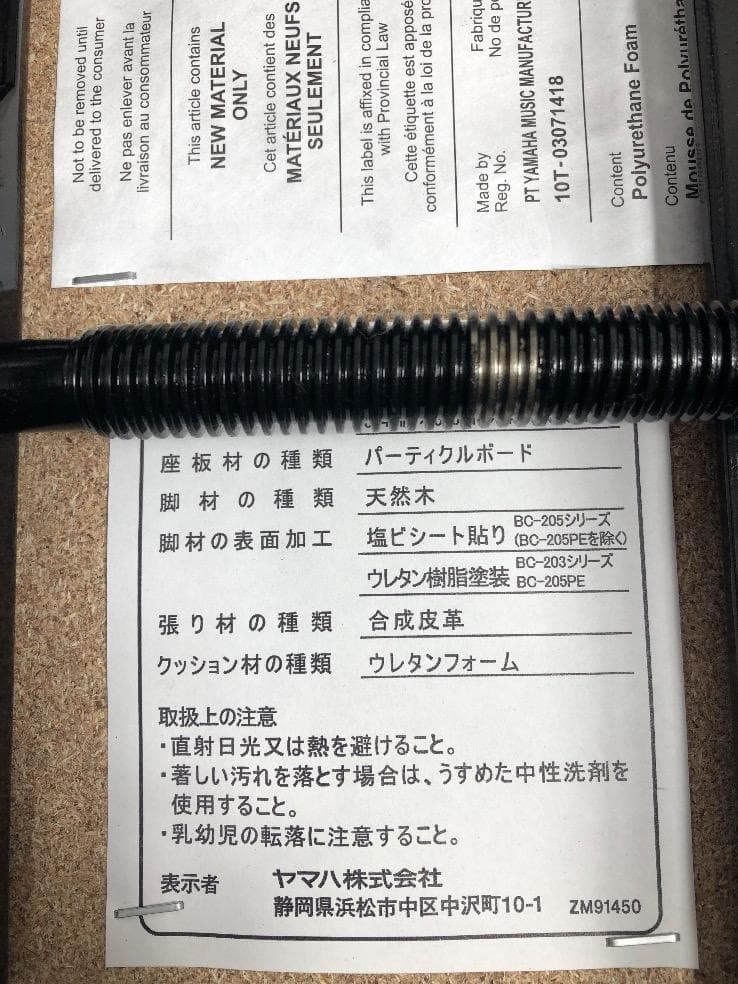 Not to be removed until
delivered to the consumer
Ne pas enlever avant la
livraison au consommateur
This article contains
NEW MATERIAL
ONLY
Cet article contient des
MATÉRIAUX NEUFS
SEULEMENT
This label is affixed in
with Provincial Law
Cette étiquette est apposée
conformément à la loi de la
Made by
Reg. No.
No de
PT YAMAHA MUSIC
10T-03071418
Content
Polyurethane Foam
Contenu
Mousse de
座板材の種類 パーティクルボード
脚材の種類 天然木
脚材の表面加工 塩ビシート貼り BC-205シリーズ
(BC-205PEを除く)
ウレタン樹脂塗装 BC-203シリーズ
BC-205PE
張り材の種類 合成皮革
クッション材の種類 ウレタンフォーム
取扱上の注意
・直射日光又は熱を避けること。
・著しい汚れを落とす場合は、うすめた中性洗剤を
使用すること。
・乳幼児の転落に注意すること。
表示者 ヤマハ株式会社
静岡県浜松市中区中沢町10-1 ZM91450